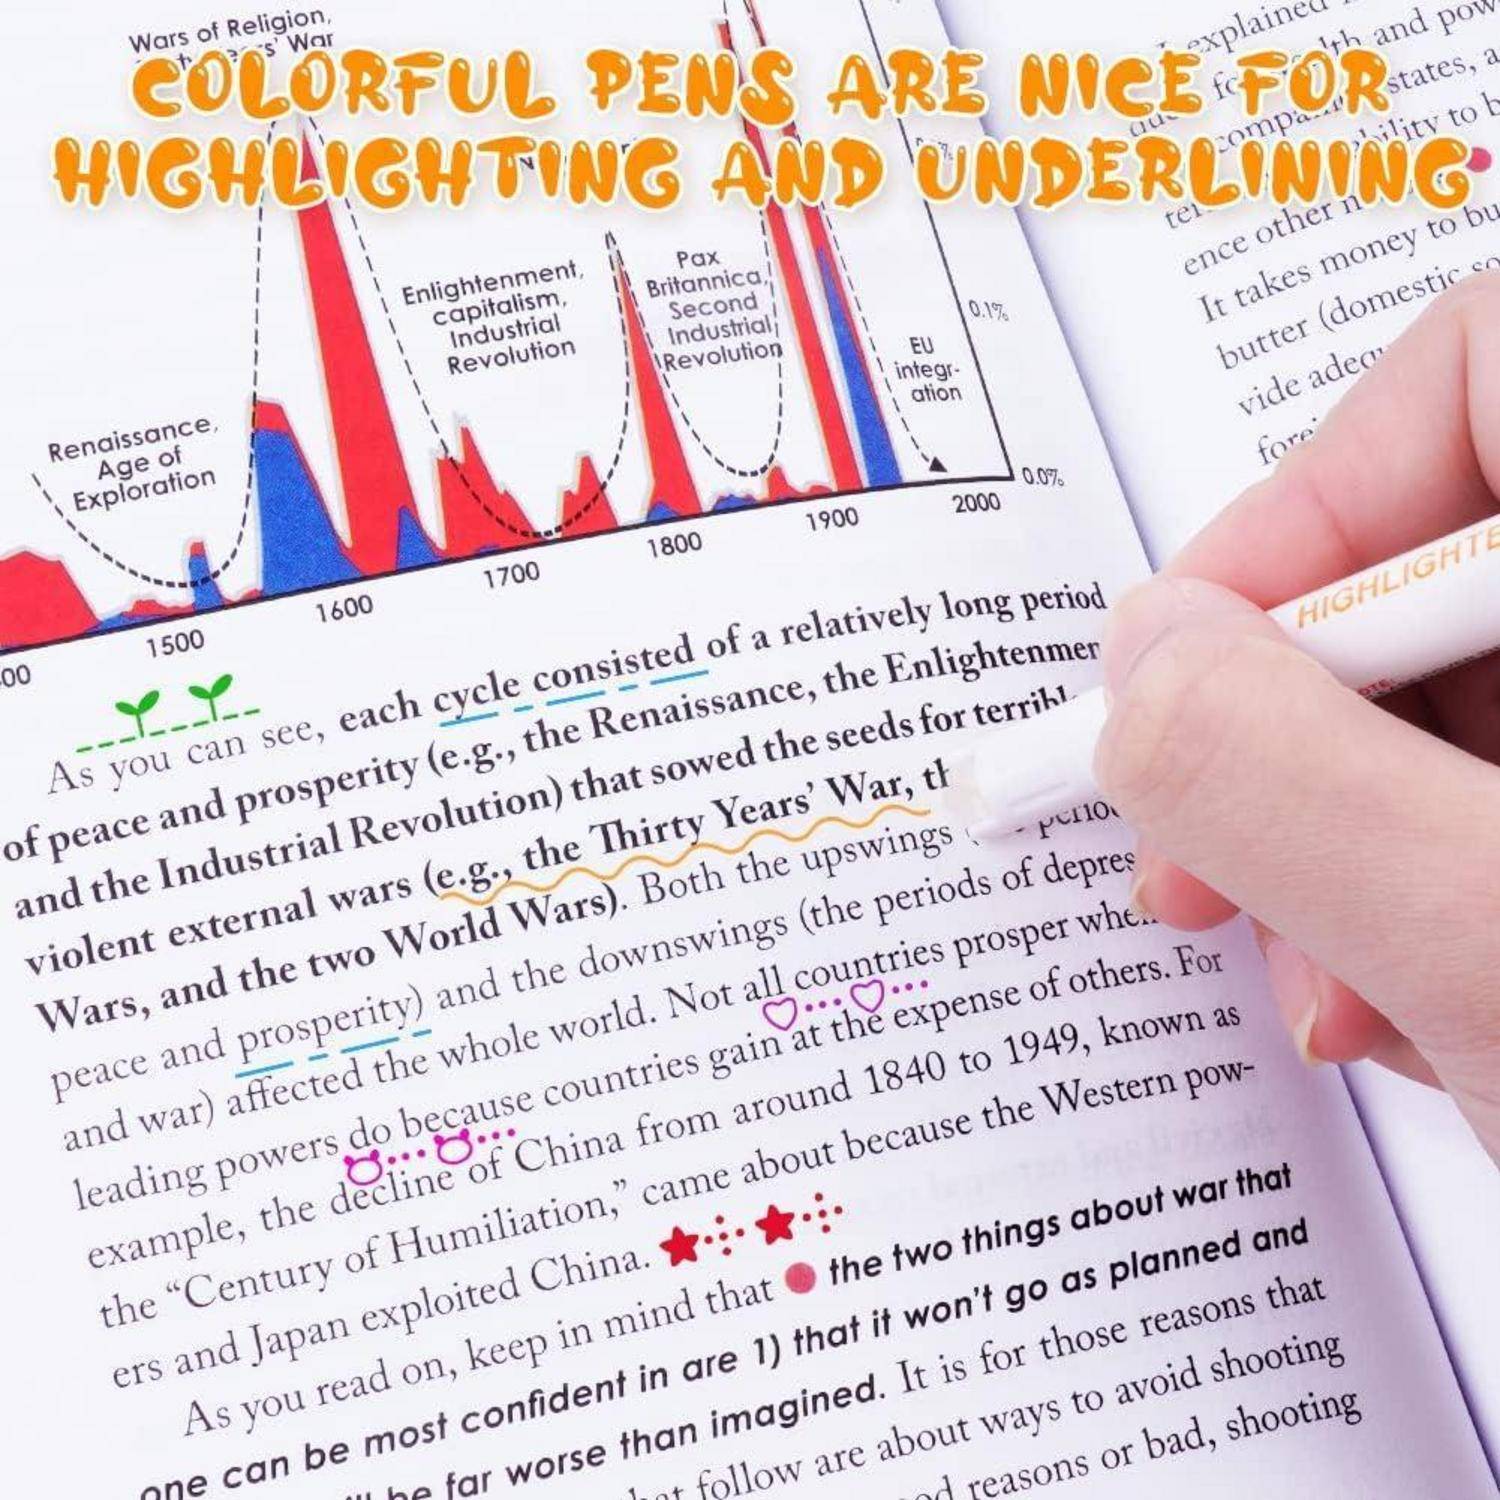 Wars of Religion,
War
COLORFUL PENS ARE NICE FOR
HIGHLIGHTING AND UNDERLINING
Enlightenment,
capitalism,
Industrial
Revolution
Pax
Britannica,
Second
Industrial
Revolution
EU
integr-
ation
Renaissance,
Age of
Exploration
0.1%
0.0%
1500
1600
1700
1800
1900
2000
As you can see, each cycle consisted of a relatively long period
of peace and prosperity (e.g., the Renaissance, the
and the Industrial Revolution) that sowed the seeds for
violent external wars (e.g., the Thirty Years' War,
Wars, and the two World Wars). Both the upswings
peace and prosperity) and the downswings (the periods of
and war) affected the whole world. Not all countries prosper
leading powers do because countries gain at the expense of others. For
example, the decline of China from around 1840 to 1949, known as
the “Century of Humiliation,” came about because the Western pow-
ers and Japan exploited China.
As you read on, keep in mind that the two things about war that
one can be most confident in are 1) that it won't go as planned and
be far worse than imagined. It is for those reasons that
follow are about ways to avoid shooting
reasons or bad, shooting
explained
and
states,
to
ence other
It takes money to
butter (domestic
vide